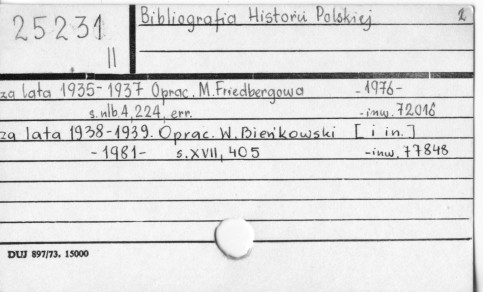 25231
II
Bibliografia Historii Polskiej 2
za lata 1935-1937 Oprac. M. Friedbergowa -1976-
s. nlb. 4, 224, err. -inw. 72016
za lata 1938-1939. Oprac. W. Bieńkowski [i in.]
-1981- s. XVII, 405 -inw. 77848
DUJ 897/73. 15000